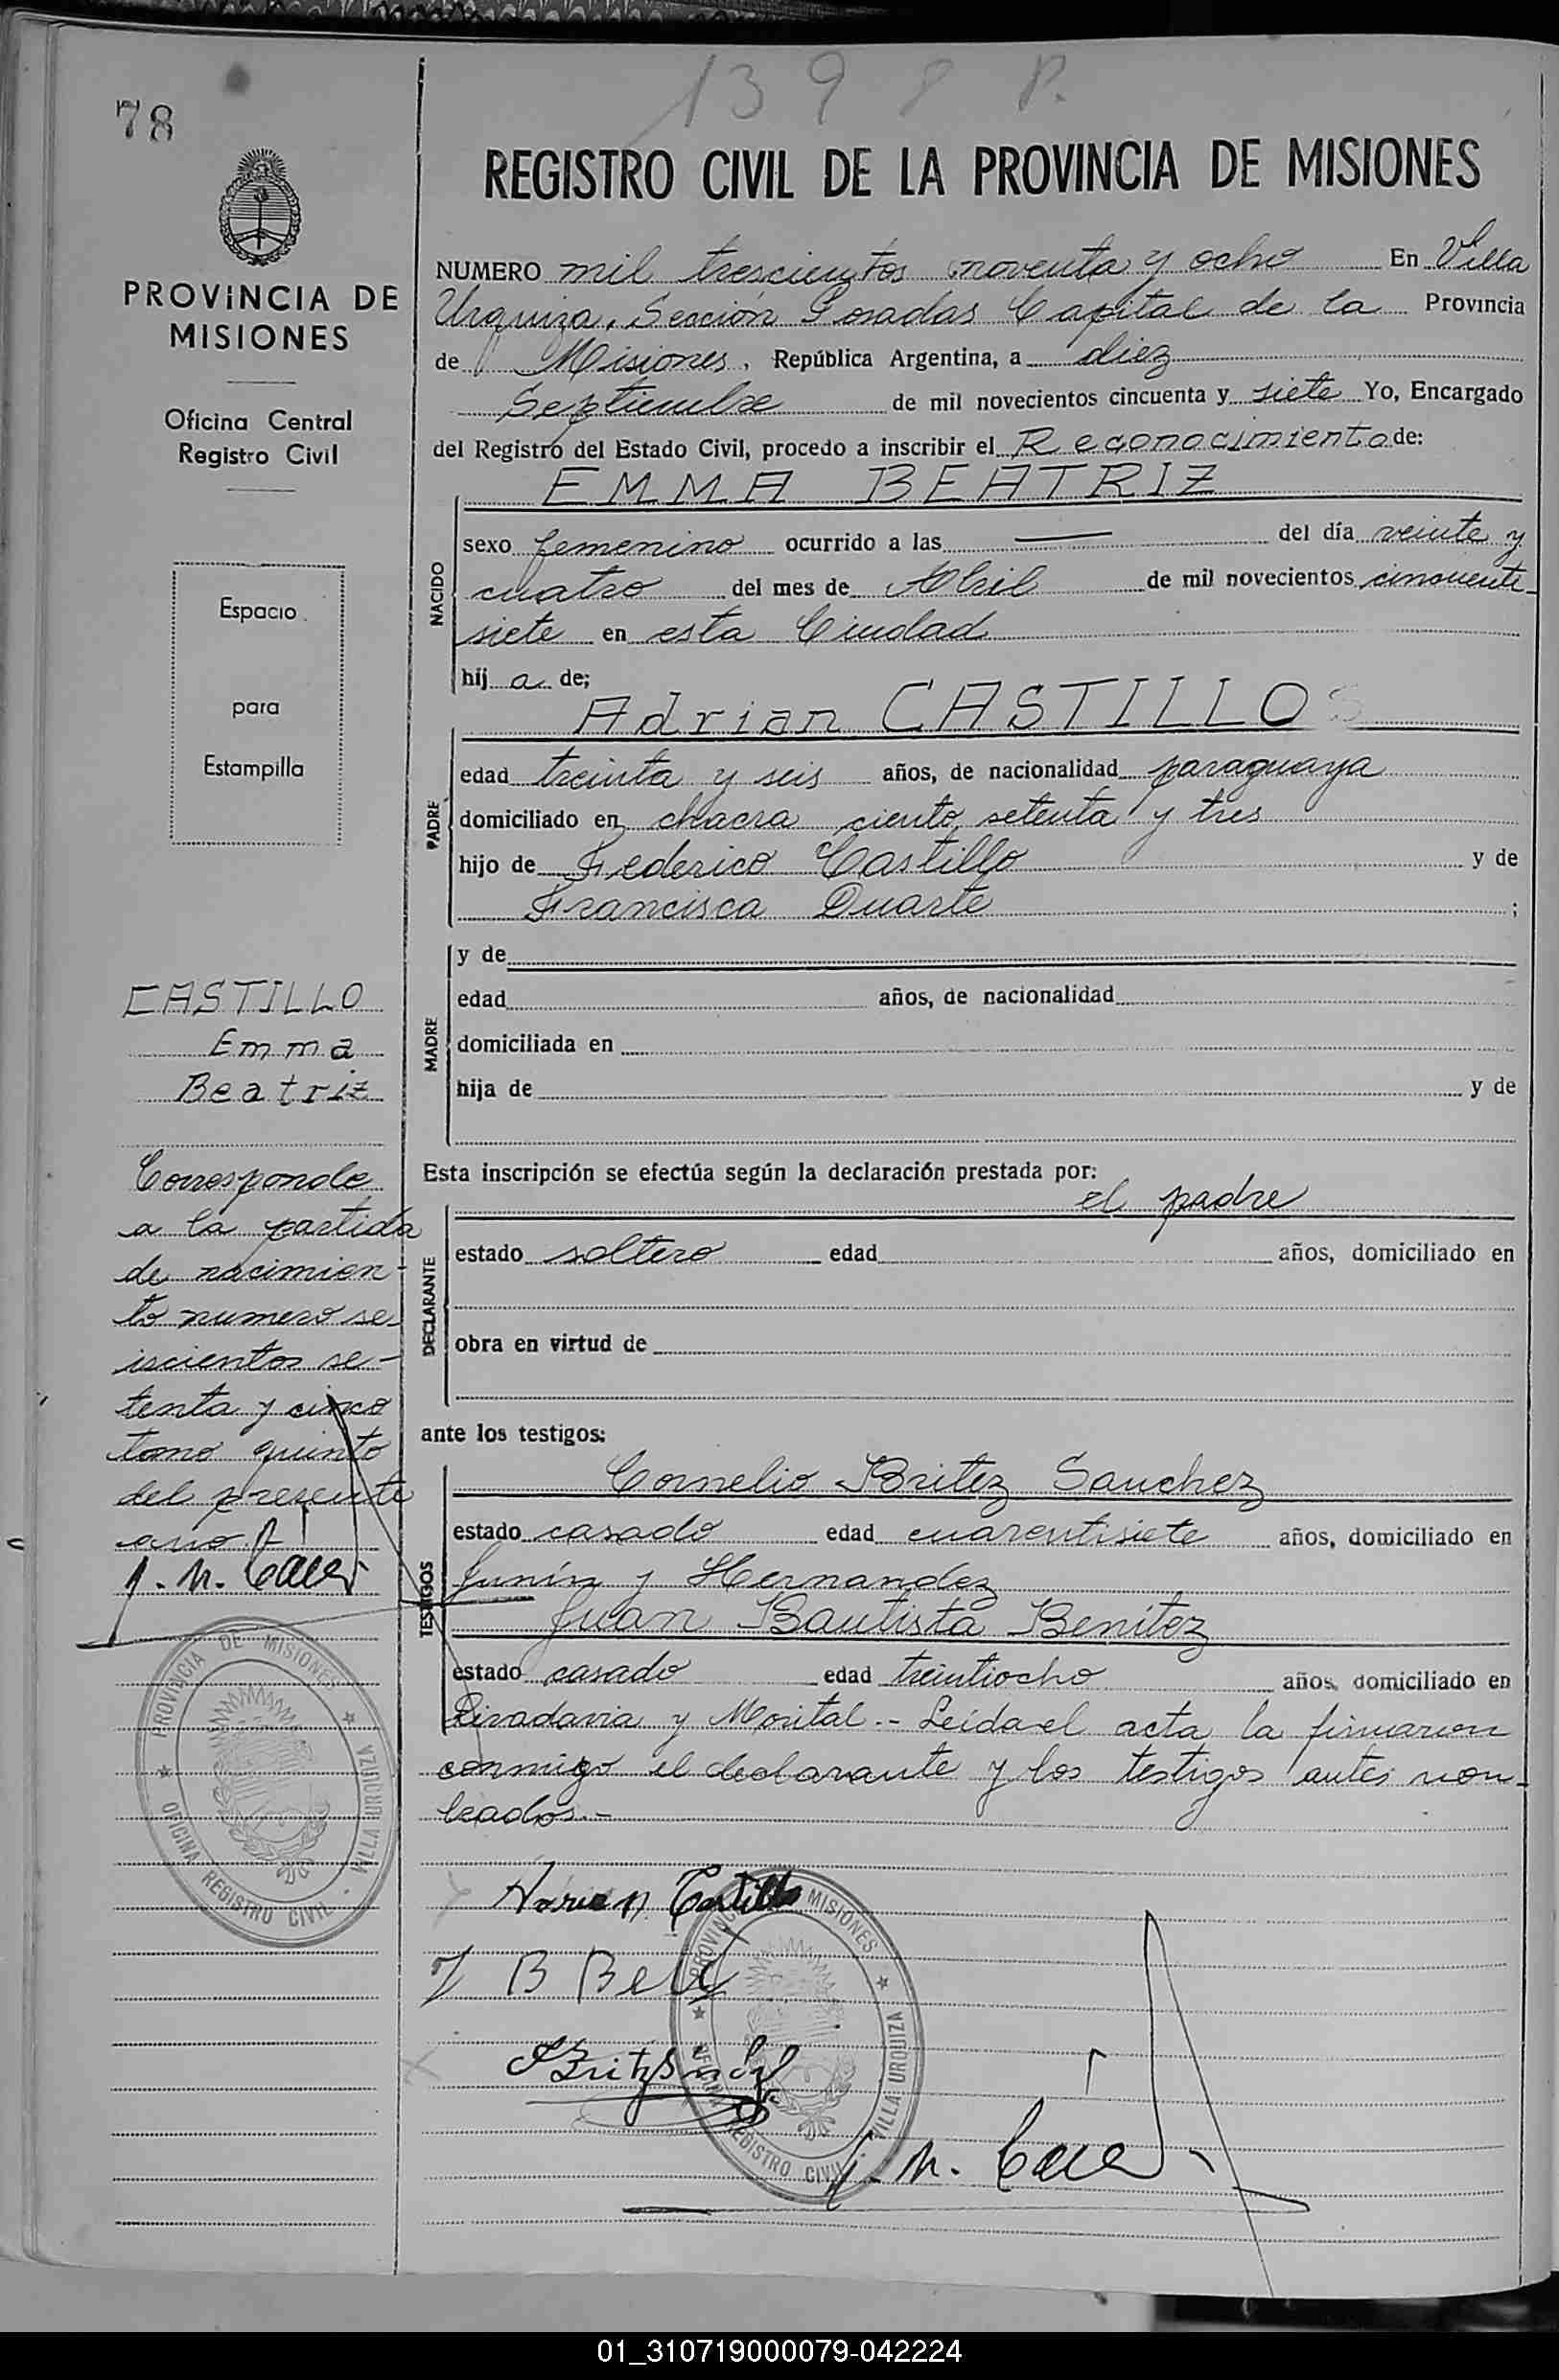 1398 P.
78
REGISTRO CIVIL DE LA PROVINCIA DE MISIONES
PROVINCIA DE
MISIONES
Oficina Central
Registro Civil
Espacio
para
Estampilla
NUMERO mil trescientos noventa y ocho En Villa
Urquiza, Sección Posadas Capital de la Provincia
de Misiones, República Argentina, a diez
Septiembre de mil novecientos cincuenta y siete Yo, Encargado
del Registro del Estado Civil, procedo a inscribir el Reconocimiento de:
EMMA BEATRIZ
NACIDO
sexo femenino ocurrido a las — del día veinte y
cuatro del mes de Abril de mil novecientos cincuenta
siete en esta Ciudad
hij a de;
Adrian CASTILLO
PADRE
edad treinta y seis años, de nacionalidad paraguaya
domiciliado en chacra ciento setenta y tres
hijo de Federico Castillo y de
Francisca Duarte ;
MADRE
y de
edad años, de nacionalidad
domiciliada en
hija de y de
CASTILLO
Emma
Beatriz
Corresponde
a la partida
de nacimien-
to numero se-
iscientos se-
tenta y cinco
tomo quinto
del presente
año.
Esta inscripción se efectúa según la declaración prestada por:
el padre
DECLARANTE
estado soltero edad años, domiciliado en
obra en virtud de
ante los testigos:
TESTIGOS
Cornelio Britez Sanchez
estado casado edad cuarentisiete años, domiciliado en
Junín y Hernandez
Juan Bautista Benitez
estado casado edad treintiocho años, domiciliado en
Rivadavia y Morital.- Leida el acta la firmaron
conmigo el declarante y los testigos antes nom-
brados.-
PROVINCIA DE MISIONES
OFICINA REGISTRO CIVIL - VILLA URQUIZA
Adrian Castillo
J B Be
PROVINCIA MISIONES
OFICINA REGISTRO CIVIL VILLA URQUIZA
01_310719000079-042224